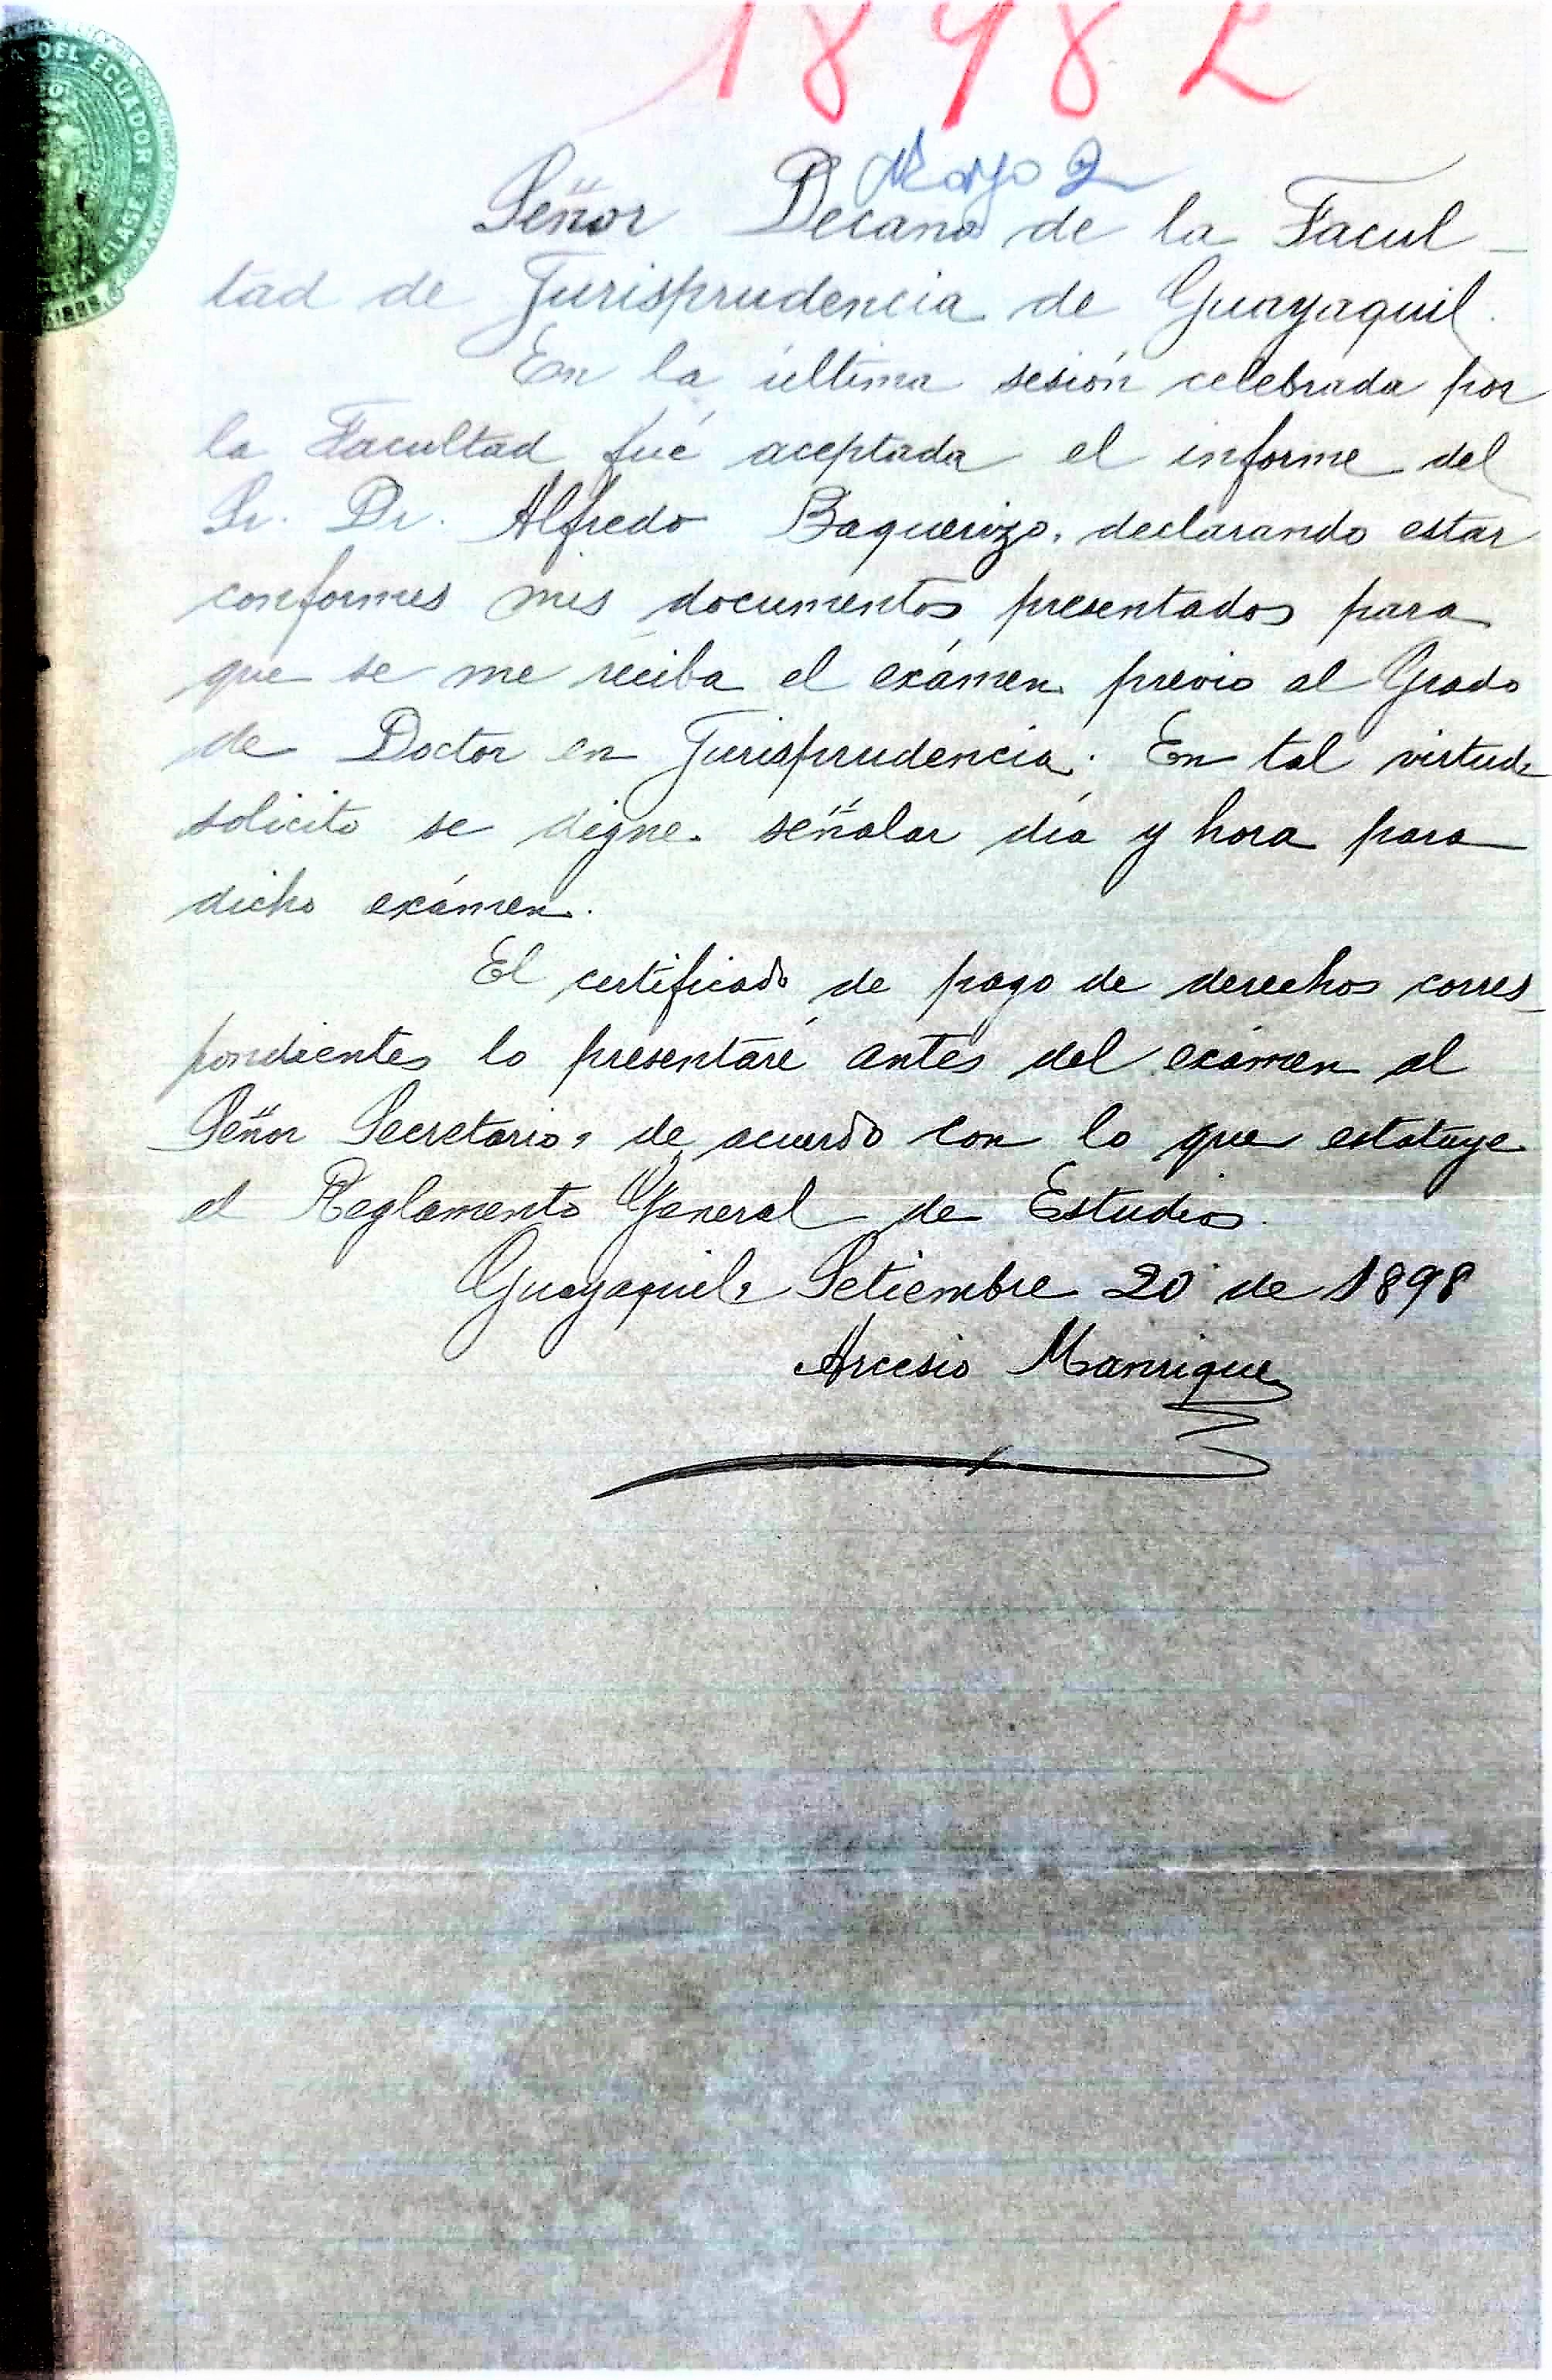 1898
Mayo 2
DEL ECUADOR
CLASE
Señor Decano de la Facul-
tad de Jurisprudencia de Guayaquil.
En la última sesión celebrada por
la Facultad fué aceptada el informe del
Sr. Dr. Alfredo Baquerizo, declarando estar
conformes mis documentos presentados para
que se me reciba el exámen previo al Grado
de Doctor en Jurisprudencia. En tal virtud
solicito se digne señalar día y hora para
dicho exámen.
El certificado de pago de derechos corres-
pondientes lo presentaré antes del exámen al
Señor Secretario, de acuerdo con lo que estatuye
el Reglamento General de Estudios.
Guayaquil, Setiembre 20 de 1898
Arcesio Manrique